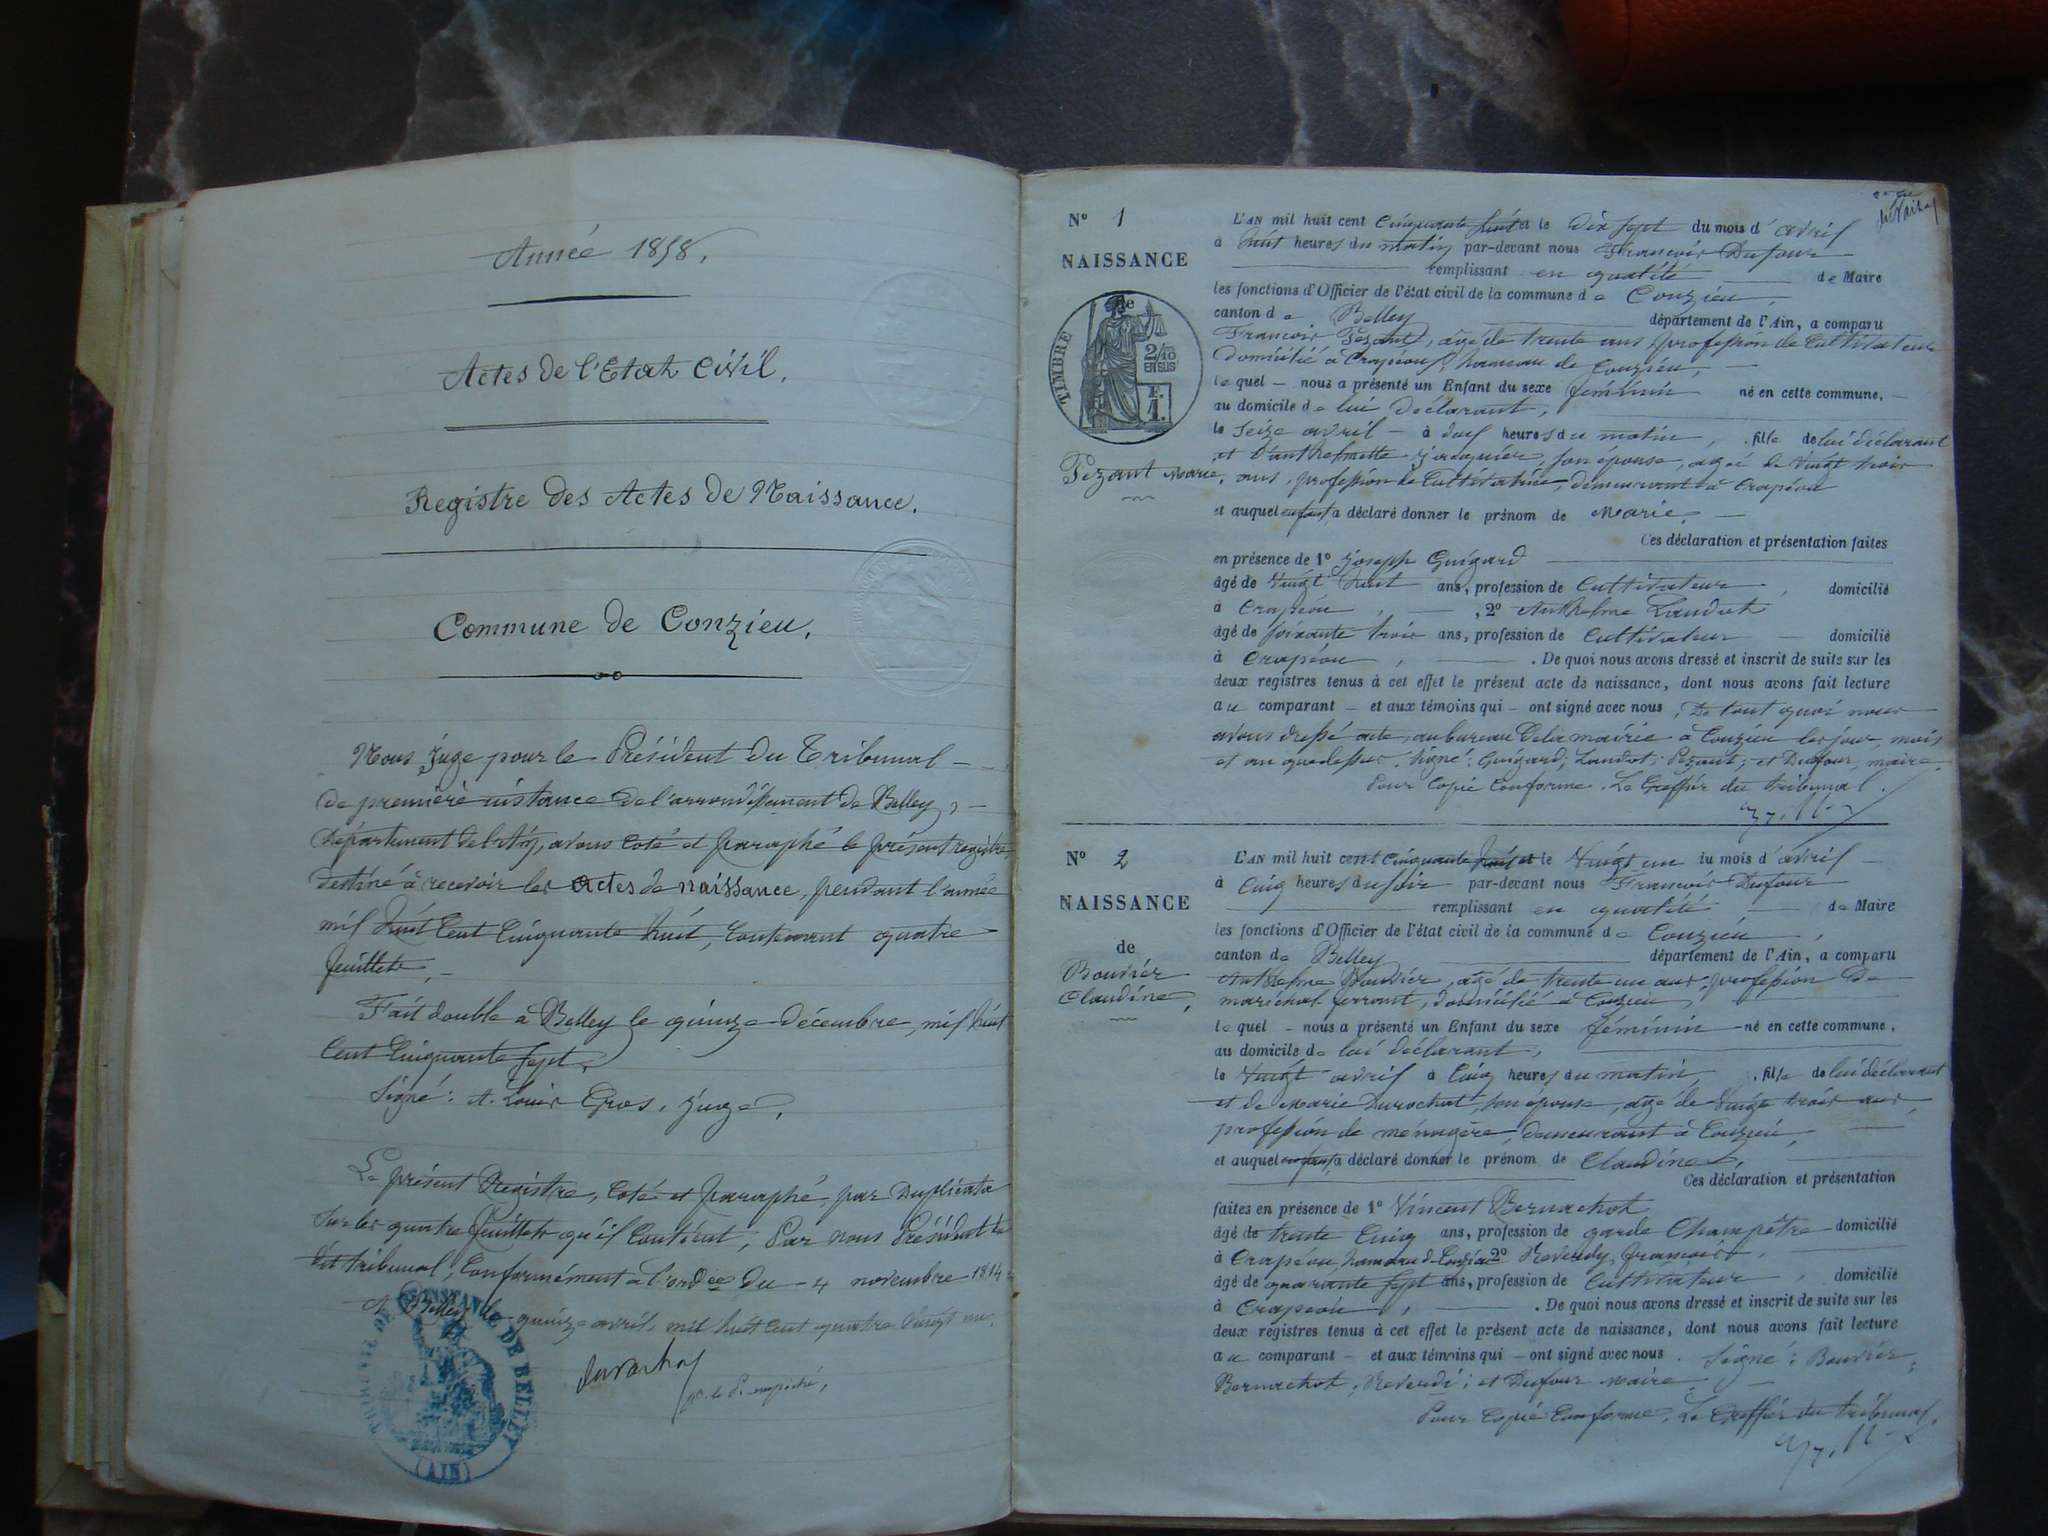 Année 1858.
Actes de l'Etat Civil.
Registre des Actes de Naissance.
Commune de Conzieu.
Nous Juge pour le Président du Tribunal
de première instance de l'arrondissement de Belley,
département de l'Ain, avons coté et paraphé le présent registre,
destiné à recevoir les Actes de naissance, pendant l'année
mil huit cent cinquante huit, contenant quatre
feuillets.
Fait double à Belley le quinze décembre, mil huit
cent cinquante sept.
Signé : A. Louis Gros, juge.
Le présent Registre, coté et paraphé, par Duplicata
sur les quatre feuillets qu'il contient, par nous Président du
dit tribunal, conformément à l'ordce du 4 novembre 1814
A Belley le quinze avril, mil huit cent quatre vingt un.
pr. le P. empêché,
TRIBUNAL DE 1ERE INSTANCE DE BELLEY
(AIN)
N° 1
NAISSANCE
de
TIMBRE
2/10
EN SUS
F.
1.
Pezant Marie.
L'AN mil huit cent cinquante huit et le dix sept du mois d'avril
à huit heures du matin par-devant nous François Dufour
remplissant en qualité de Maire
les fonctions d'Officier de l'état civil de la commune de Conzieu,
canton de Belley département de l'Ain, a comparu
François Pezant, âgé de trente ans, profession de Cultivateur
domicilié à Crapéou, hameau de Conzieu,
lequel nous a présenté un Enfant du sexe féminin né en cette commune,
au domicile de lui déclarant,
le seize avril à deux heures du matin, fille de lui déclarant
et d'Anthelmette Jacquier, son épouse, âgée de vingt trois
ans, profession de Cultivatrice, demeurant à Crapéou
et auquel enfant, a déclaré donner le prénom de Marie.
Ces déclaration et présentation faites
en présence de 1° Joseph Guigard
âgé de vingt huit ans, profession de Cultivateur, domicilié
à Crapéou, 2° Anthelme Laudet
âgé de soixante trois ans, profession de Cultivateur domicilié
à Crapéou, . De quoi nous avons dressé et inscrit de suite sur les
deux registres tenus à cet effet le présent acte de naissance, dont nous avons fait lecture
au comparant et aux témoins qui ont signé avec nous, De tout quoi nous
avons dressé acte, au bureau de la mairie à Conzieu les jour, mois
et an que dessus. Signé : Guigard, Laudet, Pezant, et Dufour, maire.
Pour Copie Conforme. Le Greffier du tribunal.
N° 2
NAISSANCE
de
Bouvier
Claudine,
L'AN mil huit cent cinquante huit et le vingt un du mois d'avril
à cinq heures du soir par-devant nous François Dufour
remplissant en qualité de Maire
les fonctions d'Officier de l'état civil de la commune de Conzieu,
canton de Belley département de l'Ain, a comparu
Anthelme Bouvier, âgé de trente un ans, profession de
maréchal ferrant, domicilié à Conzieu,
lequel nous a présenté un Enfant du sexe féminin né en cette commune.
au domicile de lui déclarant,
le vingt avril à cinq heures du matin, fille de lui déclarant
et de Marie Durochat, son épouse, âgé de vingt trois ans,
profession de ménagère, demeurant à Conzieu,
et auquel enfant, a déclaré donner le prénom de Claudine,
Ces déclaration et présentation
faites en présence de 1° Vincent Bernachot
âgé de trente cinq ans, profession de garde Champêtre domicilié
à Crapéou, hameau de Conzieu 2° Reverdy, françois,
âgé de quarante sept ans, profession de Cultivateur, domicilié
à Crapéou, . De quoi nous avons dressé et inscrit de suite sur les
deux registres tenus à cet effet le présent acte de naissance, dont nous avons fait lecture
au comparant et aux témoins qui ont signé avec nous. Signé : Bouvier,
Bernachot, Reverdi, et Dufour maire
Pour Copie Conforme, Le Greffier du tribunal.